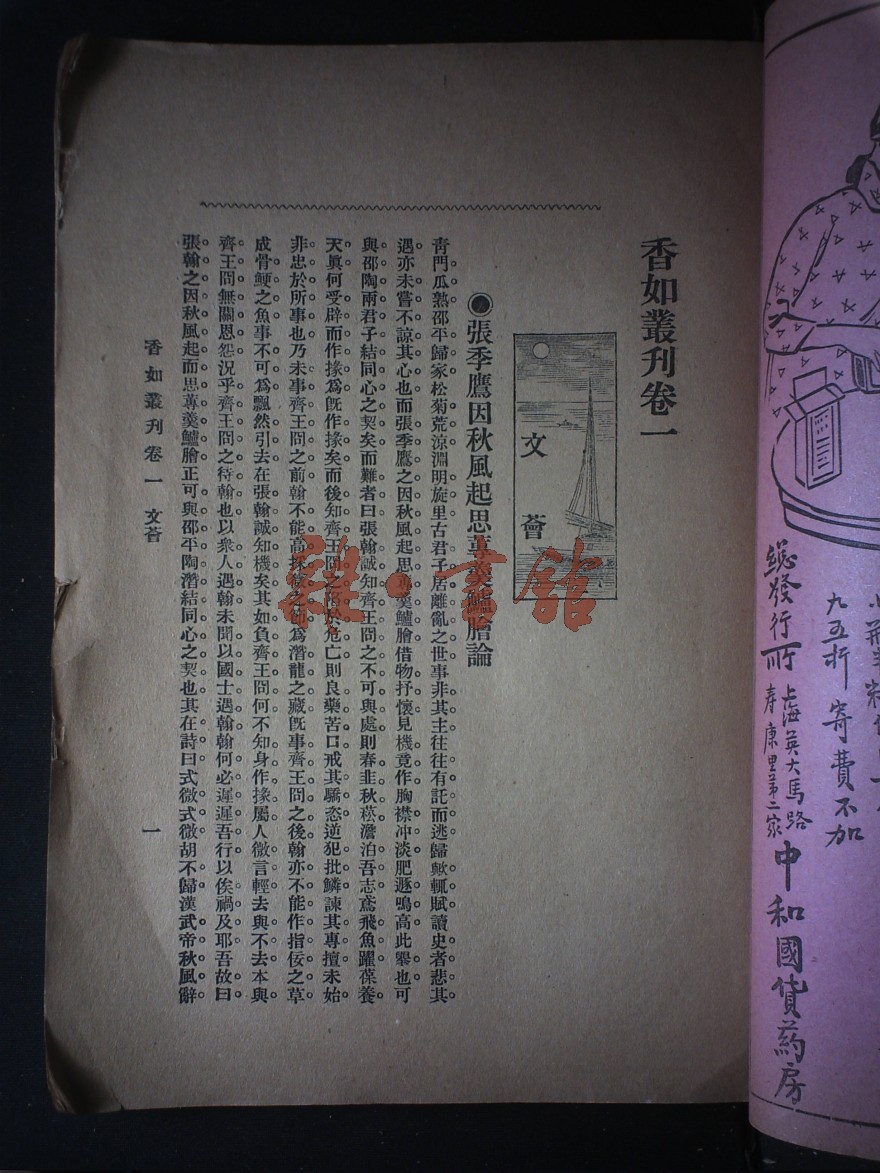 總發行所
上海英大馬路
壽康里第二家
中和國貨葯房
九五折 寄費不加
香如叢刊卷一
文薈
張季鷹因秋風起思蓴羹鱸膾論
靑門瓜熟邵平歸家松菊荒涼淵明旋里古君子居離亂之世事非其主往往有託而逃歸歟輒賦讀史者悲其
遇亦未嘗不諒其心也而張季鷹之因秋風起思蓴羹鱸膾借物抒懷見機竟作胸襟冲淡肥遯鳴高此舉也可
與邵陶兩君子結同心之契矣而難者曰張翰誠知齊王冏之不可與處則春韭秋菘澹泊吾志鳶飛魚躍葆養
天眞何受辟而作掾爲旣作掾矣而後知齊王冏之 於危亡則良藥苦口戒其驕恣逆犯批鱗諫其專擅未始
非忠於所事也乃未事齊王冏之前翰不能高採薇之節爲潛龍之藏旣事齊王冏之後翰亦不能作指佞之草
成骨鯁之魚事不可爲飄然引去在張翰誠知機矣其如負齊王冏何不知身作掾屬人微言輕去與不去本與
齊王冏無關恩怨況乎齊王冏之待翰也以衆人遇翰未聞以國士遇翰翰何必遲遲吾行以俟禍及耶吾故曰
張翰之因秋風起而思蓴羹鱸膾正可與邵平陶潛結同心之契也其在詩曰式微式微胡不歸漢武帝秋風辭
香如叢刊卷一 文薈
一
雜·書館